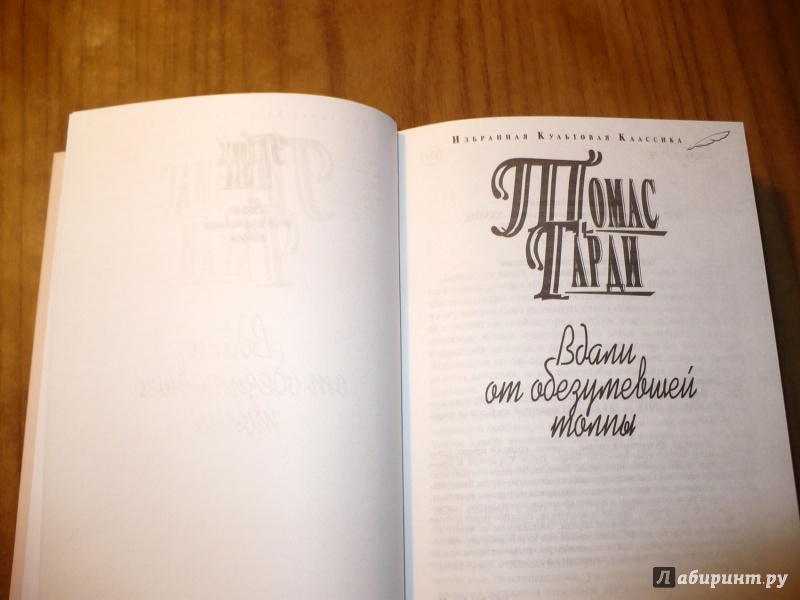 Избранная Культовая Классика
Томас
Гарди
Вдали
от обезумевшей
толпы
Лабиринт.ру